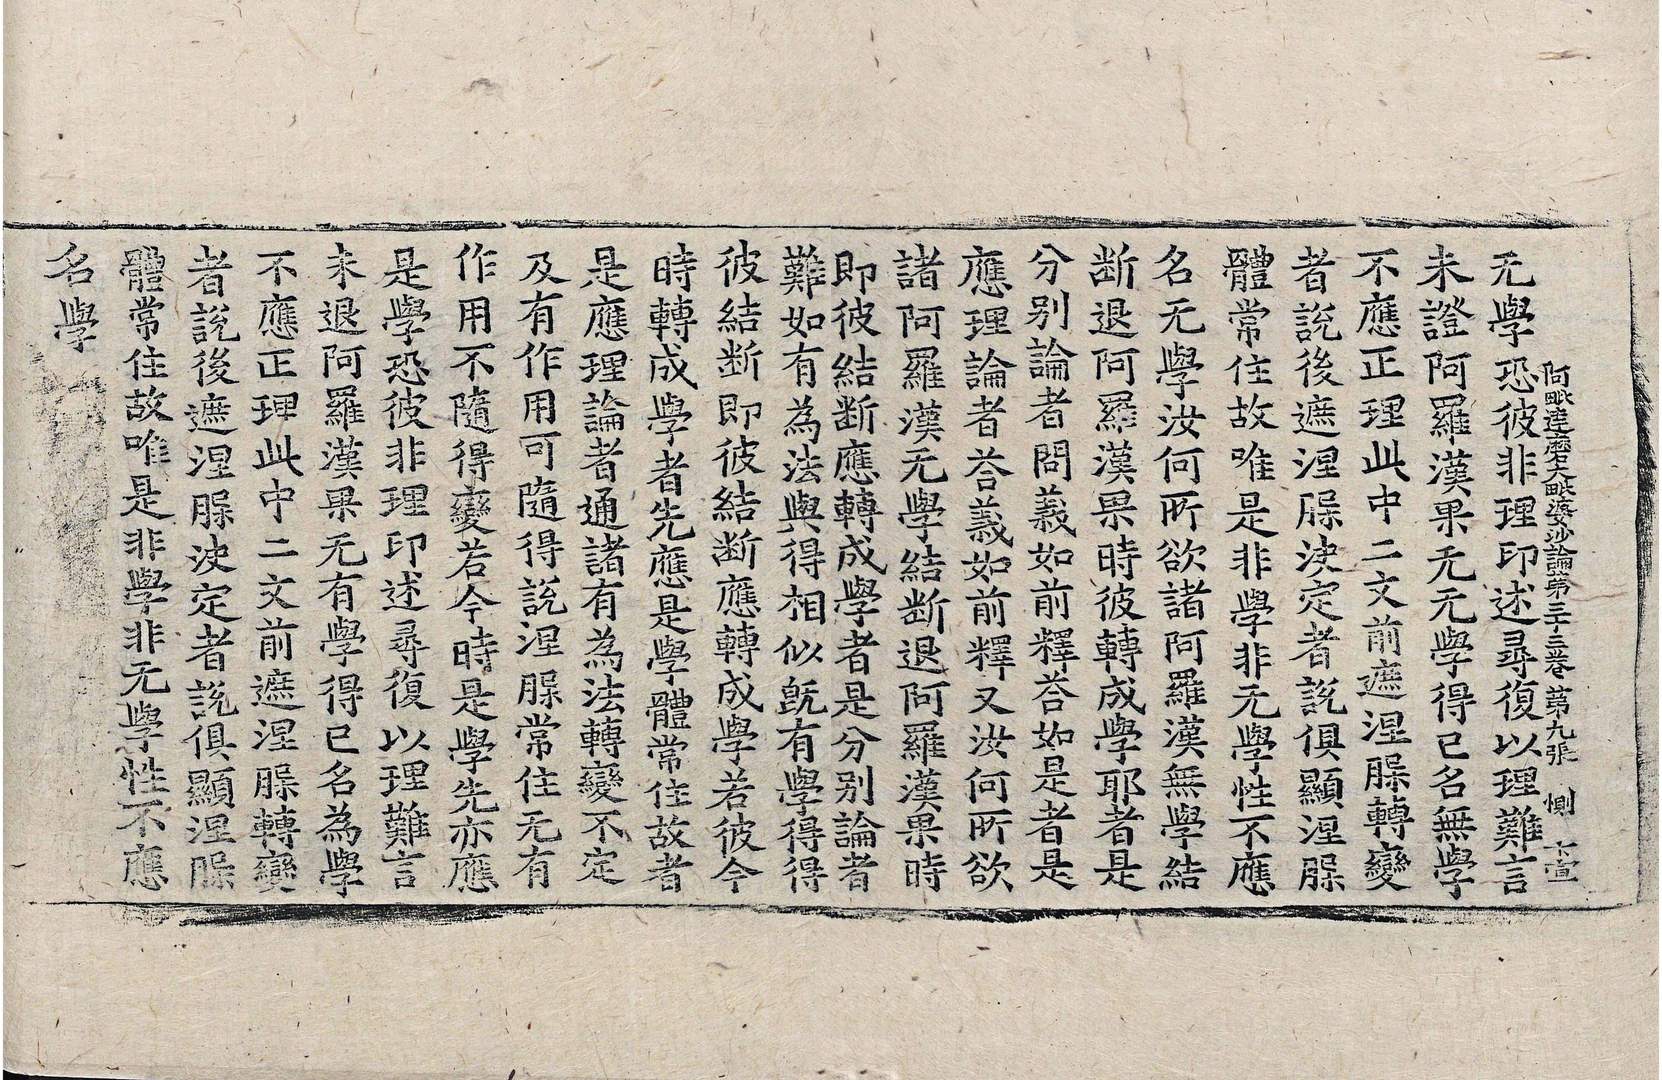 阿毗達磨大毗婆沙論第三十三卷 第九張 惻
无學恐彼非理印述尋復以理難言
未證阿羅漢果无无學得已名無學
不應正理此中二文前遮涅槃轉變
者說後遮涅槃決定者說俱顯涅槃
體常住故唯是非學非无學性不應
名无學汝何所欲諸阿羅漢無學結
断退阿羅漢果時彼轉成學耶者是
分別論者問義如前釋荅如是者是
應理論者荅義如前釋又汝何所欲
諸阿羅漢无學結断退阿羅漢果時
即彼結断應轉成學者是分別論者
難如有為法與得相似旣有學得得
彼結断即彼結断應轉成學若彼今
時轉成學者先應是學體常住故者
是應理論者通諸有為法轉變不定
及有作用可隨得說涅槃常住无有
作用不隨得變若今時是學先亦應
是學恐彼非理印述尋復以理難言
未退阿羅漢果无有學得已名為學
不應正理此中二文前遮涅槃轉變
者說後遮涅槃決定者說俱顯涅槃
體常住故唯是非學非无學性不應
名學